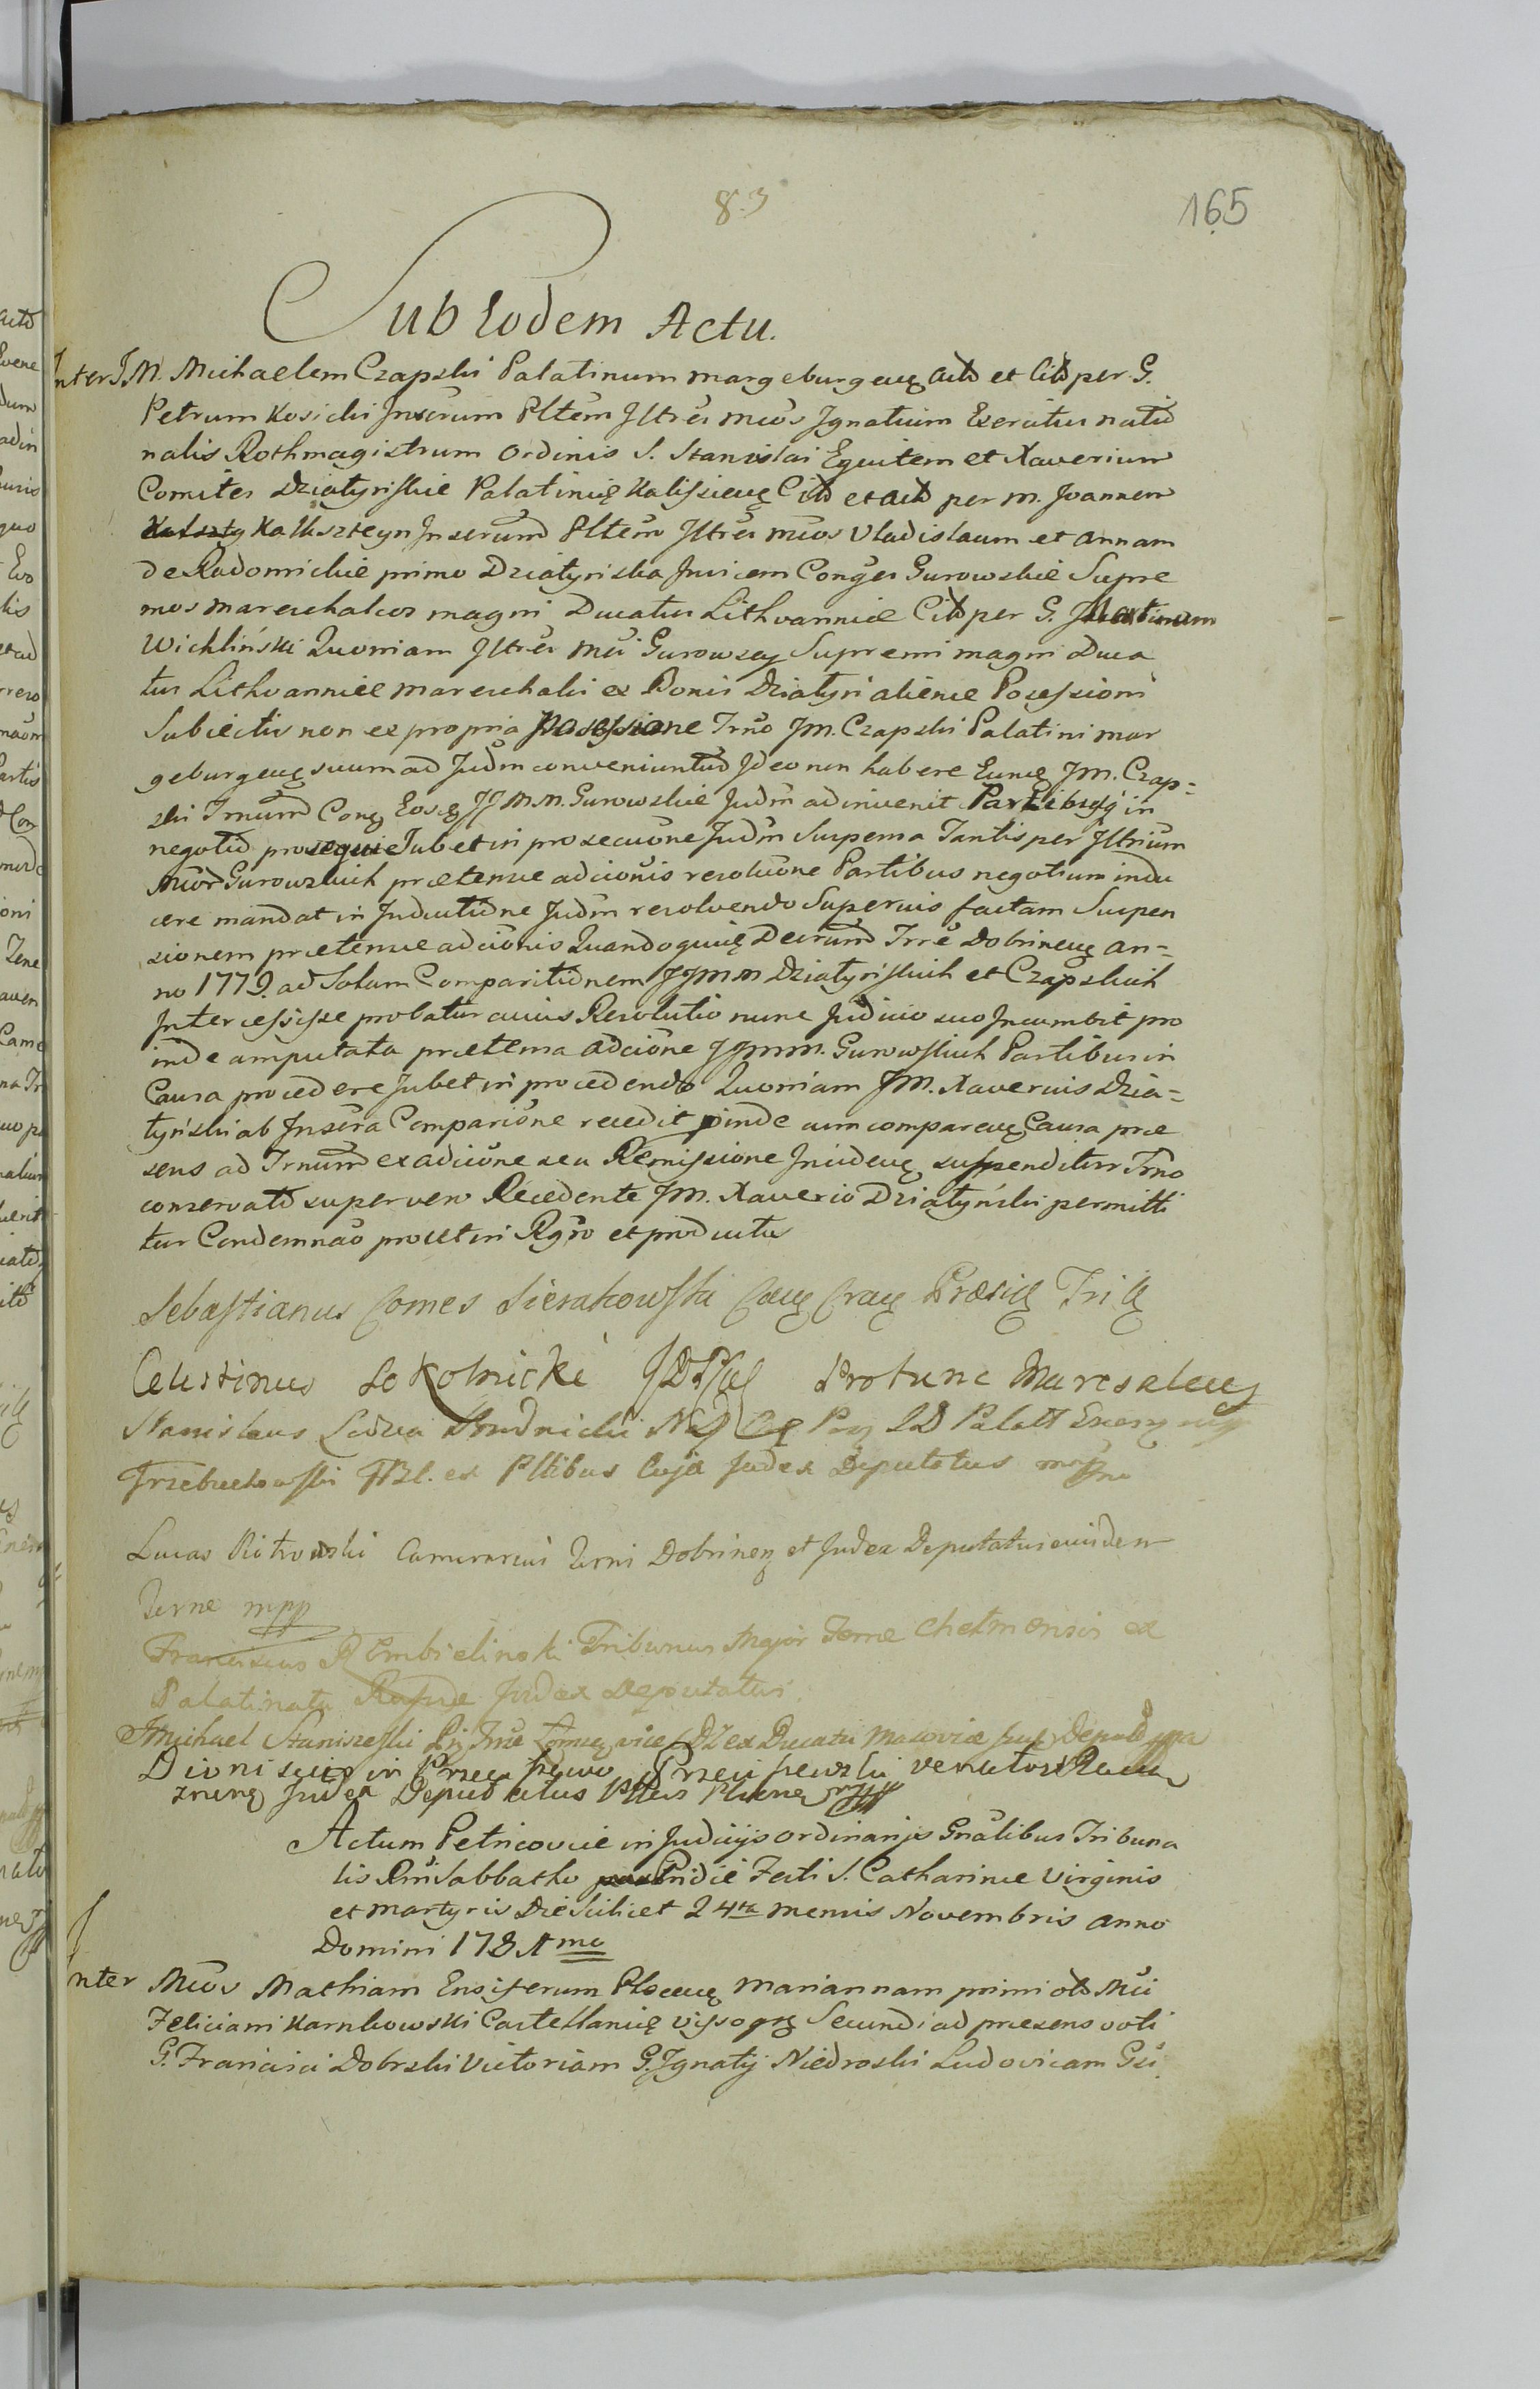 83
165
Sub Eodem Actu.
Inter JM. Michaelem Czapski Palatinum margeburgeñ Actõ et Citõ per G.
Petrum Kosicki Jnserum Pltem Jltres mcos Jgnatium Exercitus natio
nalis Rothmagistrum Ordinis S. Stanislai Equitem et Xaverium
Comites Dziatyńskie Palatinię Kalissieñ Citõ et actõ per m. Joannem
Kalksteyn Jnserum Pltem Jltres mcos Vladislaum et Annam
de Radomickie primo Dziatyńska Jnvicem Conges Gurowskie Supre
mos mareschalcos magni Ducatus Lithvanniæ Citõ per G. Martinum
Wichliński Quoniam Jltres mci Gurowscy Supremi magni Duca
tus Lithvanniæ mareschalci ex Bonis Dziatyń alienæ Possessioni
Subiectis non ex propria possessione Trno Jm. Czapski Palatini mar
geburgeñ suum ad Judm conveniuntur Jdeo non habere Eunde JM. Czap=
ski Trnum Cong Eosde JJMM. Gurowskie Judm adinvenit Partibusq in
negotio prosequi Jubet in prosecuone Judm Suspensa Tantisper Jltrium
Mcor Gurowskich prætensæ adcionis resoluone Partibus negotium indu
cere mandat in Inductione Judm resolvendo Superius factam Suspen
sionem prætensæ adcionis Quandoquidę Decrum Trre Dobrineñ an=
no 1779. ad Solum Comparitionem JJMM Dziatyńskich et Czapskich
Jntercessisse probatur cuius Resolutio nunc Judicio suo Jncumbit pro
inde amputata prætensa adcione JJmm. Gurowskich Partibus in
Causa procedere Jubet in procedendo Quoniam JM. Xaverius Dzia=
tyński ab Jnsera Comparione recedit pinde cum compareñ Causa præ
sens ad Trnum ex adcione seu Remissione Jncideñ suspenditur Trno
conservato super vero Recedente JM. Xaverio Dziatyński permitti
tur Condemnao prout in Rgro et producta
Sebastianus Comes Sierakowski Præsię Trilę
Celestinus Sokolnicki Protunc Maresaleus
Stanislaus Ledua
Trzebuchowski ex Pltibus Cuja Judex Deputatus
Lucas Piotrowski Camerarius Terræ Dobrineñ et Judex Deputatus eiusdem
Terræ mpp
Franciscus Rembielinski Tribunus Major Terræ Chelmensis ex
Palatinatu Judex Deputatus
Michael Staniszeski ex Ducatu Masoviæ
Dionisius in Przeciszewo Przeciszewski venator
Judex Deputatus
Actum Petricoviæ in Judicijs ordinarijs Gnalibus Tribuna
lis Rni Sabbatho Pridie Festi S. Catharinæ Virginis
et martyris Die Scilicet 24ta mensis Novembris Anno
Domini 1781mo
Inter Mcos Mathiam Ensiferum Ploceñ Mariannam primi olõ Mci
Feliciani Karnkowski Castellanię Secundi ad præsens voti
G. Francisci Dobrski Victoriam G. Jgnatij Niedroski Ludovicam Gsi